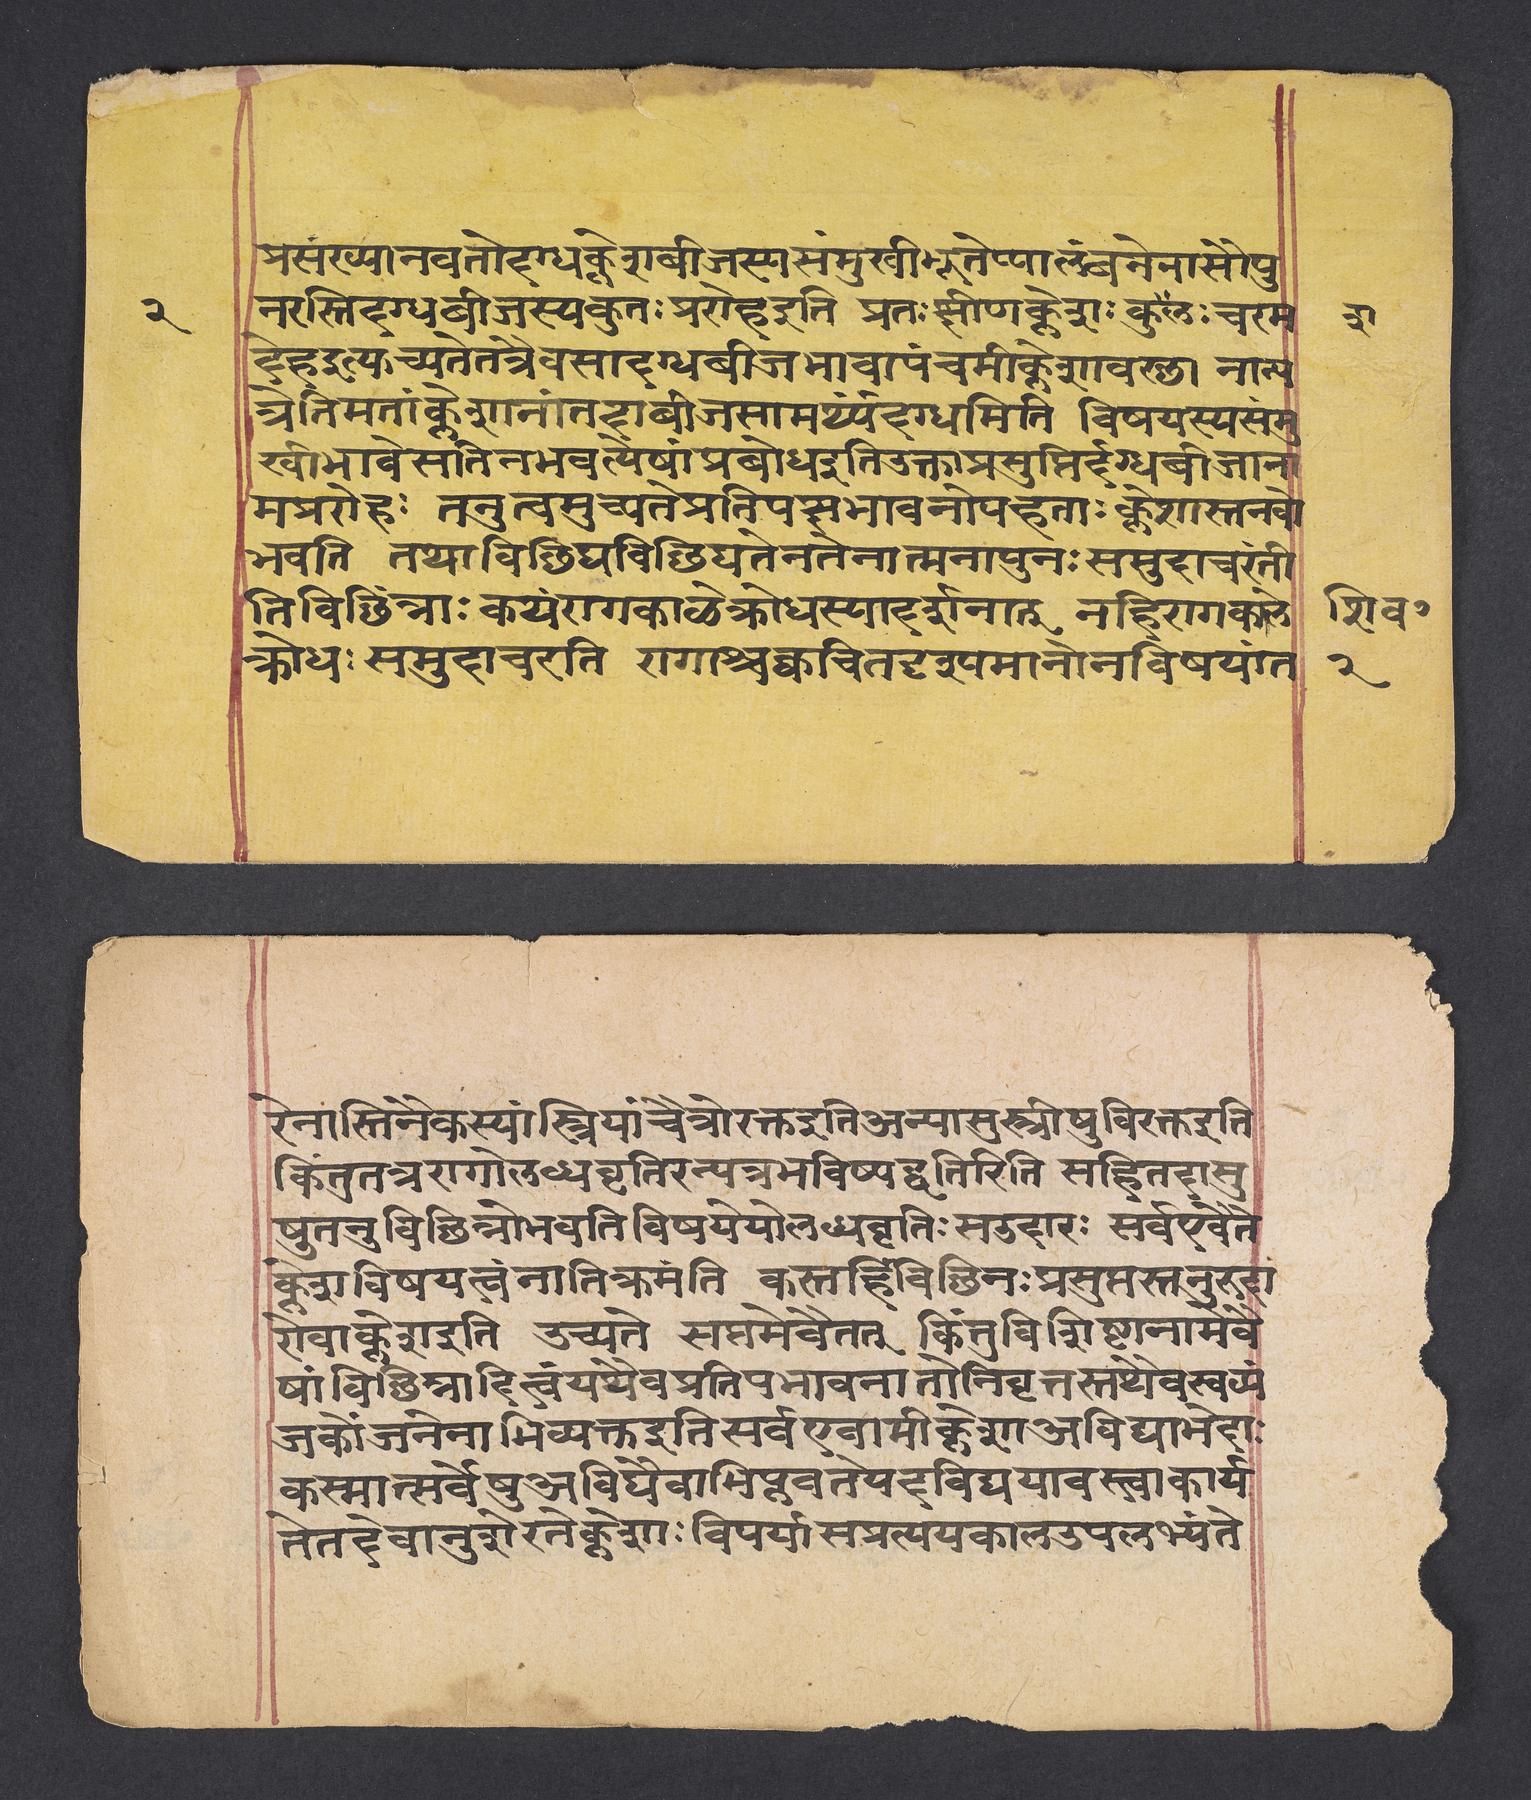 प्रसंख्यानवतोदग्धक्लेशबीजस्यसंमुखीभूतेप्यालंबनेनासौपु
२ नरस्तिदग्धबीजस्यकुतः प्ररोहइति प्रतः क्षीणक्लेशः कुशलः चरम श
देहइत्युच्यतेतत्रैवसादग्धबीजभावापंचमीक्लेशावस्था नान्य
त्रेतिमतांक्लेशानांतदाबीजसामर्थ्यंदग्धमिति विषयस्यसंमु
खीभावेसतिनभवत्येषांप्रबोधइतिउक्ताप्रसुप्तिर्दग्धबीजाना
मप्ररोहः तनुत्वमुच्यतेप्रतिपक्षभावनोपहताः क्लेशास्तनवो
भवति तथाविछिद्यविछिद्यतेनतेनात्मनापुनः समुदाचरंती
तिविछिंन्नाः कथंरागकालेक्रोधस्यादर्शनात् नहिरागकाले शिव॰
क्रोधः समुदाचरति रागाश्चक्वचितदृश्पमानोनविषयांत २
रेनास्तिनैकस्यांस्त्रियांचैत्रोरक्तइतिअन्यासुस्त्रीषुविरक्तइति
किंतुतत्ररागोलब्धवृतिरन्यत्रभविष्यद्वृतिरिति सहितदासु
षुतनुविछिन्नोभवतिविषयेयोलब्धवृतिः सउदारः सर्वएवैते
क्लेशविषयत्वंनातिक्रमंति कस्तर्हिविछिनः प्रसुप्तस्तनुरुदा
रोवाक्लेशइति उच्यते सप्तमेवैतत् किंतुविशिष्टानामेवै
षांविछिन्नादित्वंयथैवप्रतिपभावनातोनिवृत्तस्तथैवस्वव्यं
जकांजनेनाभिव्यक्तइतिसर्वएवामीक्लेशाअविद्याभेदाः
कस्मात्सर्वेषुअविद्यैवाभिप्लवतेयदविद्ययावस्त्वाकार्य
तेतदेवानुशेरतेक्लेशाः विपर्यासप्रत्ययकालउपलभ्यंते